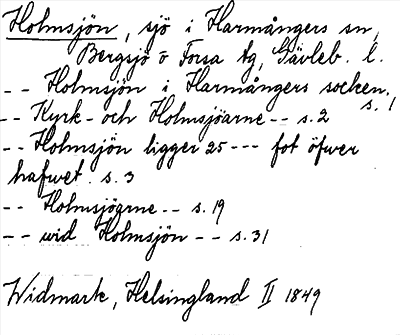 Holmsjön, sjö i Harmångers sn,
Bergsjö o Forsa tg, Gävleb. l.
-- Holmsjön i Harmångers socken.
s. 1
-- Kyrk- och Holmsjöarne -- s. 2
-- Holmsjön ligger 25 --- fot öfwer
hafwet. s. 3
-- Holmsjöarne -- s. 19
-- wid Holmsjön -- s. 31
Widmark, Helsingland II 1849